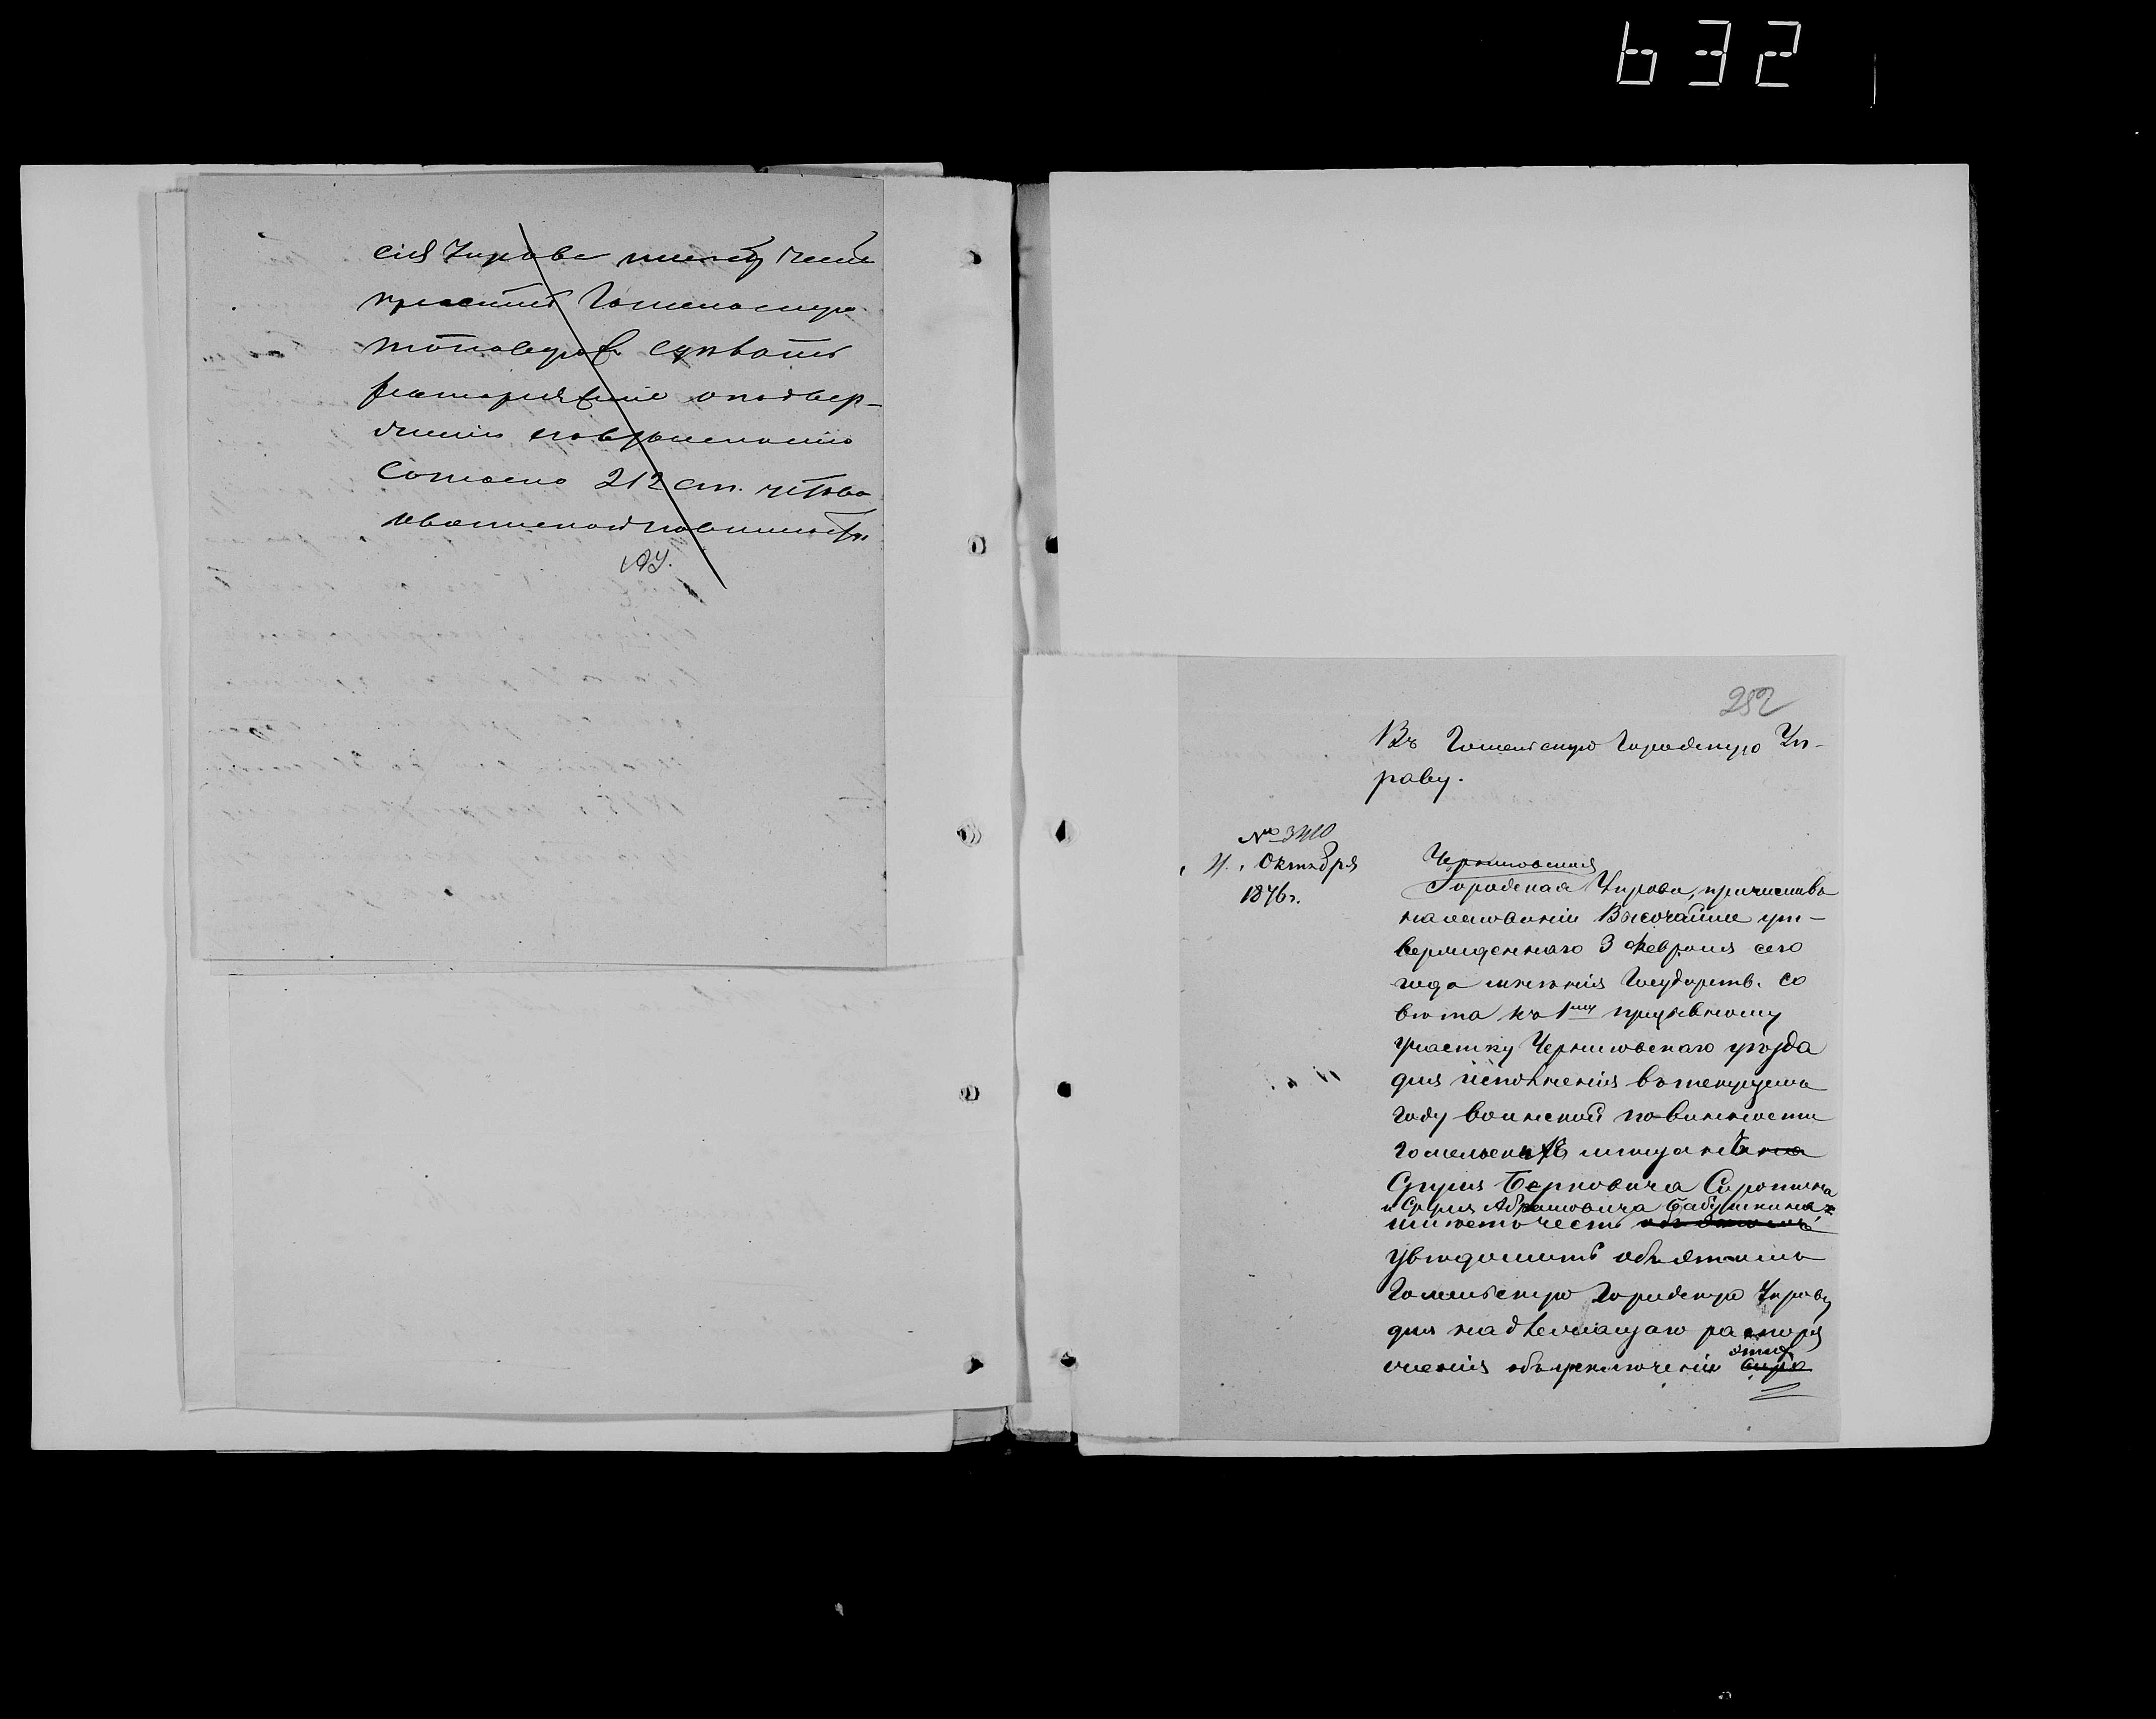 632
сія Управа имеетъ честь
просить Гомельскую
сделать
распоряженіе о подвер-
женіи
Согласно 212 ст. устава
о воинской повинности
252
Въ Гомельскую Городскую Уп-
раву.
№ 3410
11. Октября
1876 г.
Черниговская
Городская Управа, причисливъ
на основаніи Высочайше ут-
вержденнаго 3 февраля сего
года мнѣнія Государств. Со
вѣта къ 1му призывному
участку Черниговскаго уѣзда
для исполненія въ текущемъ
году воинской повинности
гомельскихъ мѣщанъ
Сруля Берковича Сиротина
и Сруля Абрамовича Бабушкина
имѣетъ честь объ этомъ
увѣдомить объ этомъ
Гомельскую Городскую Управу
для надлежащаго распоря
женія объ исключеніи этихъ